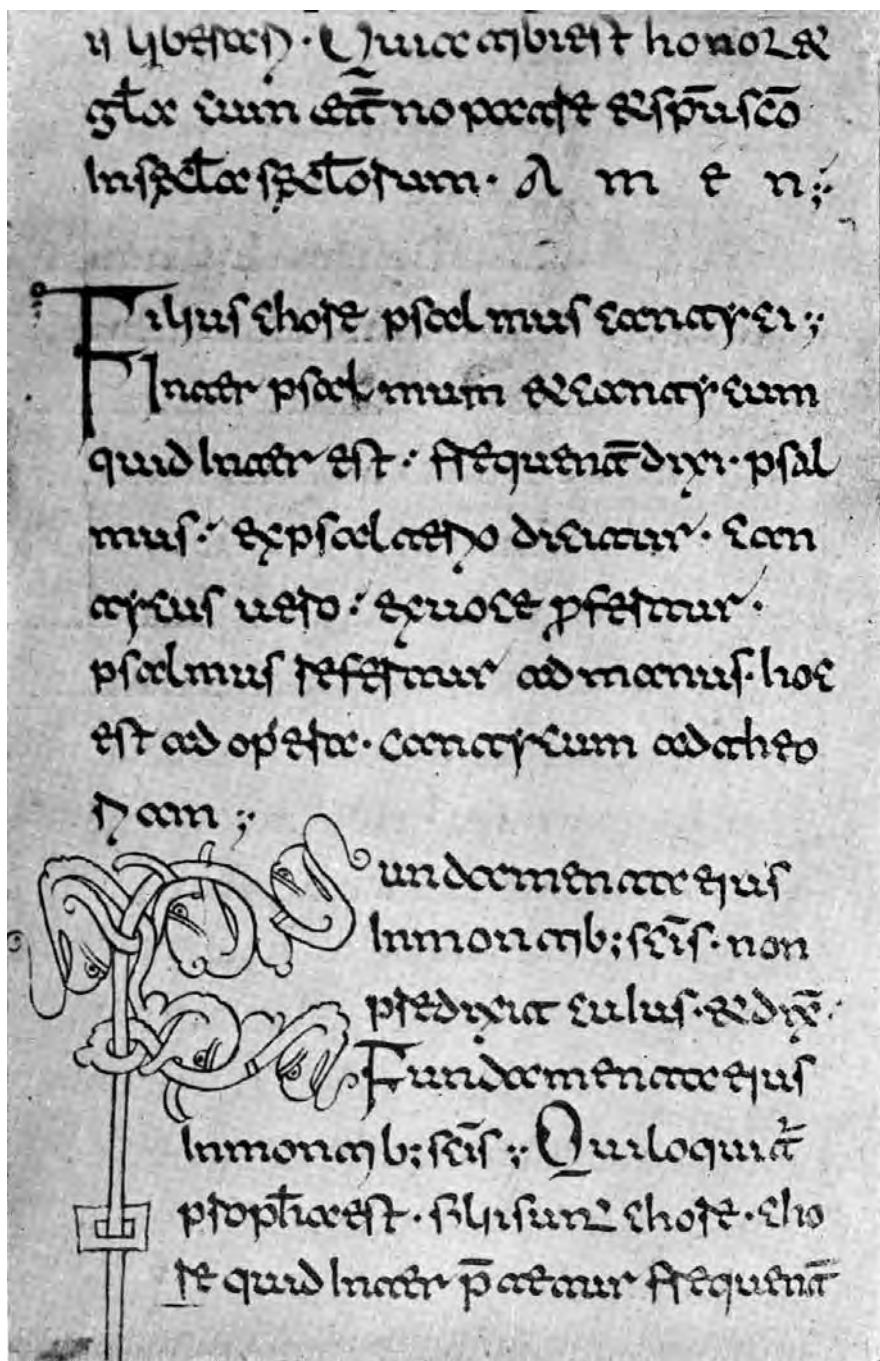 liberari · Quia tibi est honor &
gła cum et̄no patre & spū scō
In sęcła sęcłorum · A m e n ;
Filius chore psalmus cantici ;
Inter psalmum & canticum
quid Inter est · frequent̄ dixi · psal
mus · ex psalterio dicitur · can
ticus uero · ex uoce ꝓfertur ·
psalmus refertur ad manus · hoc
est ad opera · canticum ad theo
riam ;
Fundamenta eius
Inmontib; scīs · non
predixit cuIus · & dix̄ ·
Fundamenta eius
Inmontib; scīs ; Qui loquit̄
proph̄ia est · filii sunt chore · cho
re quid Inter p̄tetur frequent̄